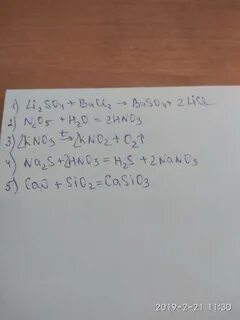 1) Li₂SO₄ + BaCl₂ → BaSO₄ + 2LiCl
2) N₂O₅ + H₂O = 2HNO₃
3) 2KNO₃ t→ 2KNO₂ + O₂↑
4) Na₂S + 2HNO₃ = H₂S + 2NaNO₃
5) CaO + SiO₂ = CaSiO₃
2019-2-21 11:30